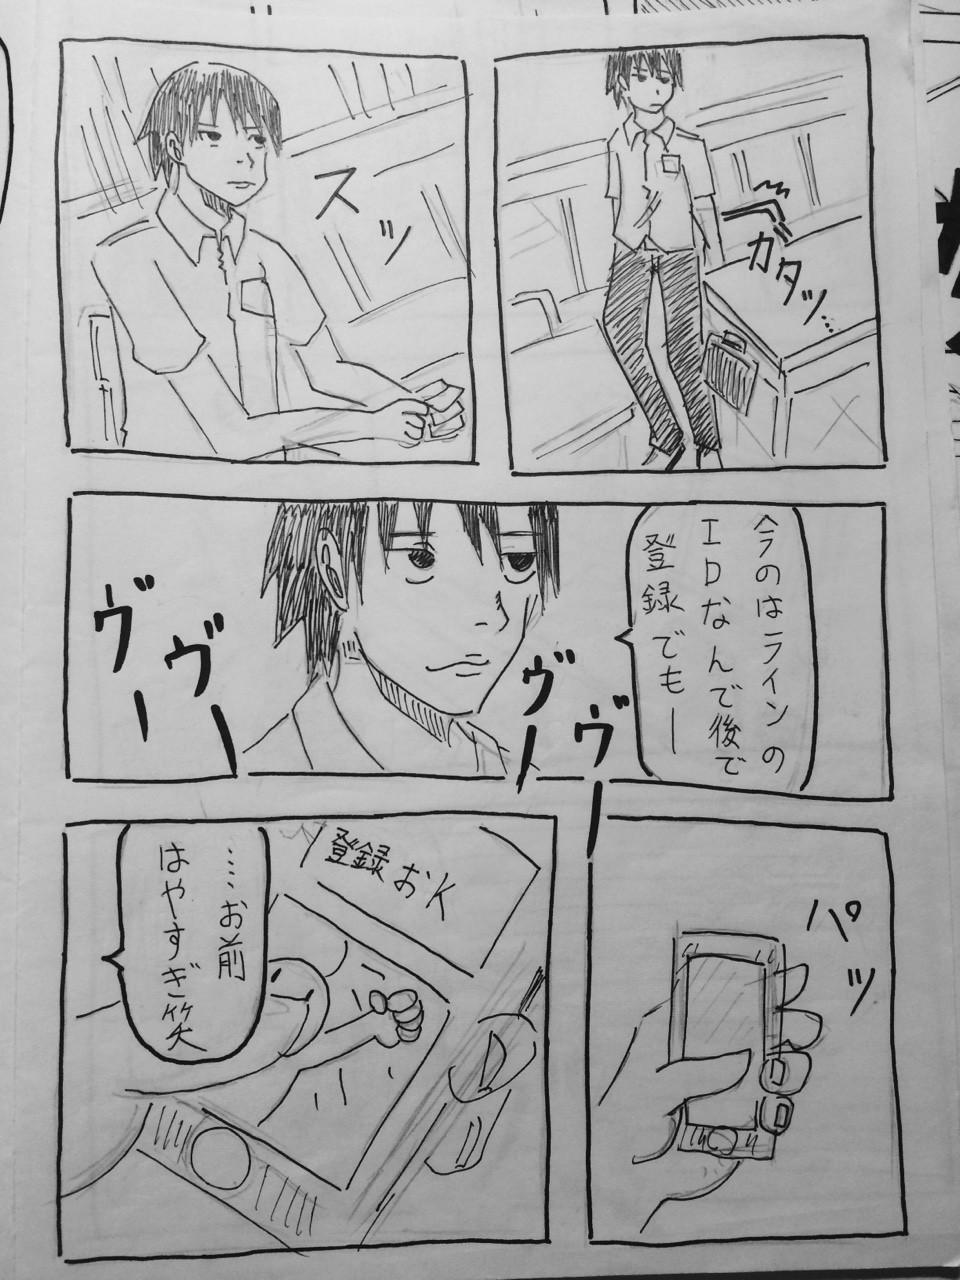 カタッ…
スッ
今のはライン の
IDなんで後で
登録でもー
ヴヴー
ヴヴー
パッ
登録おK
……お前
はやすぎ笑